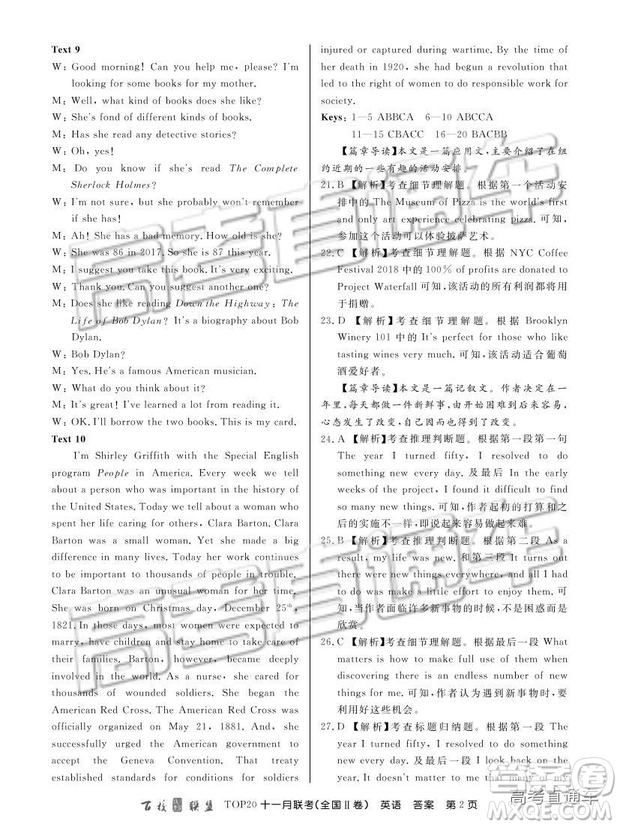 Text 9
W: Good morning! Can you help me, please? I'm
looking for some books for my mother.
M: Well, what kind of books does she like?
W: She's fond of different kinds of books.
M: Has she read any detective stories?
W: Oh, yes!
M: Do you know if she's read The Complete
Sherlock Holmes?
W: I'm not sure, but she probably won't remember
if she has!
M: Ah! She has a bad memory. How old is she?
W: She was 86 in 2017. So she is 87 this year.
M: I suggest you take this book. It's very exciting.
W: Thank you. Can you suggest another one?
M: Does she like reading Down the Highway: The
Life of Bob Dylan? It's a biography about Bob
Dylan.
W: Bob Dylan?
M: Yes. He's a famous American musician.
W: What do you think about it?
M: It's great! I've learned a lot from reading it.
W: OK. I'll borrow the two books. This is my card.
Text 10
I'm Shirley Griffith with the Special English
program People in America. Every week we tell
about a person who was important in the history of
the United States. Today we tell about a woman who
spent her life caring for others, Clara Barton. Clara
Barton was a small woman. Yet she made a big
difference in many lives. Today her work continues
to be important to thousands of people in trouble.
Clara Barton was an unusual woman for her time.
She was born on Christmas day, December 25th,
1821. In those days, most women were expected to
marry, have children and stay home to take care of
their families. Barton, however, became deeply
involved in the world. As a nurse, she helped
thousands of wounded soldiers. She began the
American Red Cross. The American Red Cross was
officially organized on May 21, 1881. And she
successfully urged the American government to
accept the Geneva Convention. That treaty
established standards for conditions for soldiers
injured or captured during wartime. By the time of
her death in 1920, she had begun a revolution that
led to the right of women to do responsible work for
society.
Keys: 1—5 ABBCA 6—10 ABCCA
11—15 CBACC 16—20 BACBB
【篇章导读】本文是一篇应用文，主要介绍了在纽
约近期的一些有趣的活动安排。
21. B 【解析】考查细节理解题。根据第一个活动安
排中的 The Museum of Pizza is the world's first
and only art experience celebrating pizza. 可知，
参加这个活动可以体验披萨艺术。
22. C 【解析】考查细节理解题。根据 NYC Coffee
Festival 2018 中的 100% of profits are donated to
Project Waterfall 可知，该活动的所有利润都将用
于捐赠。
23. D 【解析】考查细节理解题。根据 Brooklyn
Winery 101 中的 It's perfect for those who like
tasting wines very much. 可知，该活动适合葡萄
酒爱好者。
【篇章导读】本文是一篇记叙文。作者决定在
一年内每天做一件新鲜事，由开始的困难到后来的
心态发生了改变，自己的生活也发生了改变。
24. A 【解析】考查推理判断题。根据第一段第一句
The year I turned fifty, I committed to doing
something new every day. 及最后 In the early
weeks of the project, I struggled a bit to find so
so many new things. 可知，作者起初的打算和之
后的实施不一样，即说起来容易做起来难。
25. B 【解析】考查推理判断题。根据第二段 As a
result, my life was new. 和第三段 It turns out
there were new things everywhere, every day. 可
知，当作者面临许多新事物的时候，他感到惊奇和
欣赏。
26. C 【解析】考查细节理解题。根据最后一段 What
matters is knowing how to make good use of
them. 及最后一段 There is an endless number of new
things for me. 可知，当我们遇到新事物时，要利
用好这些机会。
27. D 【解析】考查标题归纳题。根据第一段 The
year I turned fifty, I committed to doing
something new every day. 及最后一段
百校联盟 TOP20 十一月联考(全国Ⅱ卷) 英语 答案 第 2 页
高考直通车
高考直通车